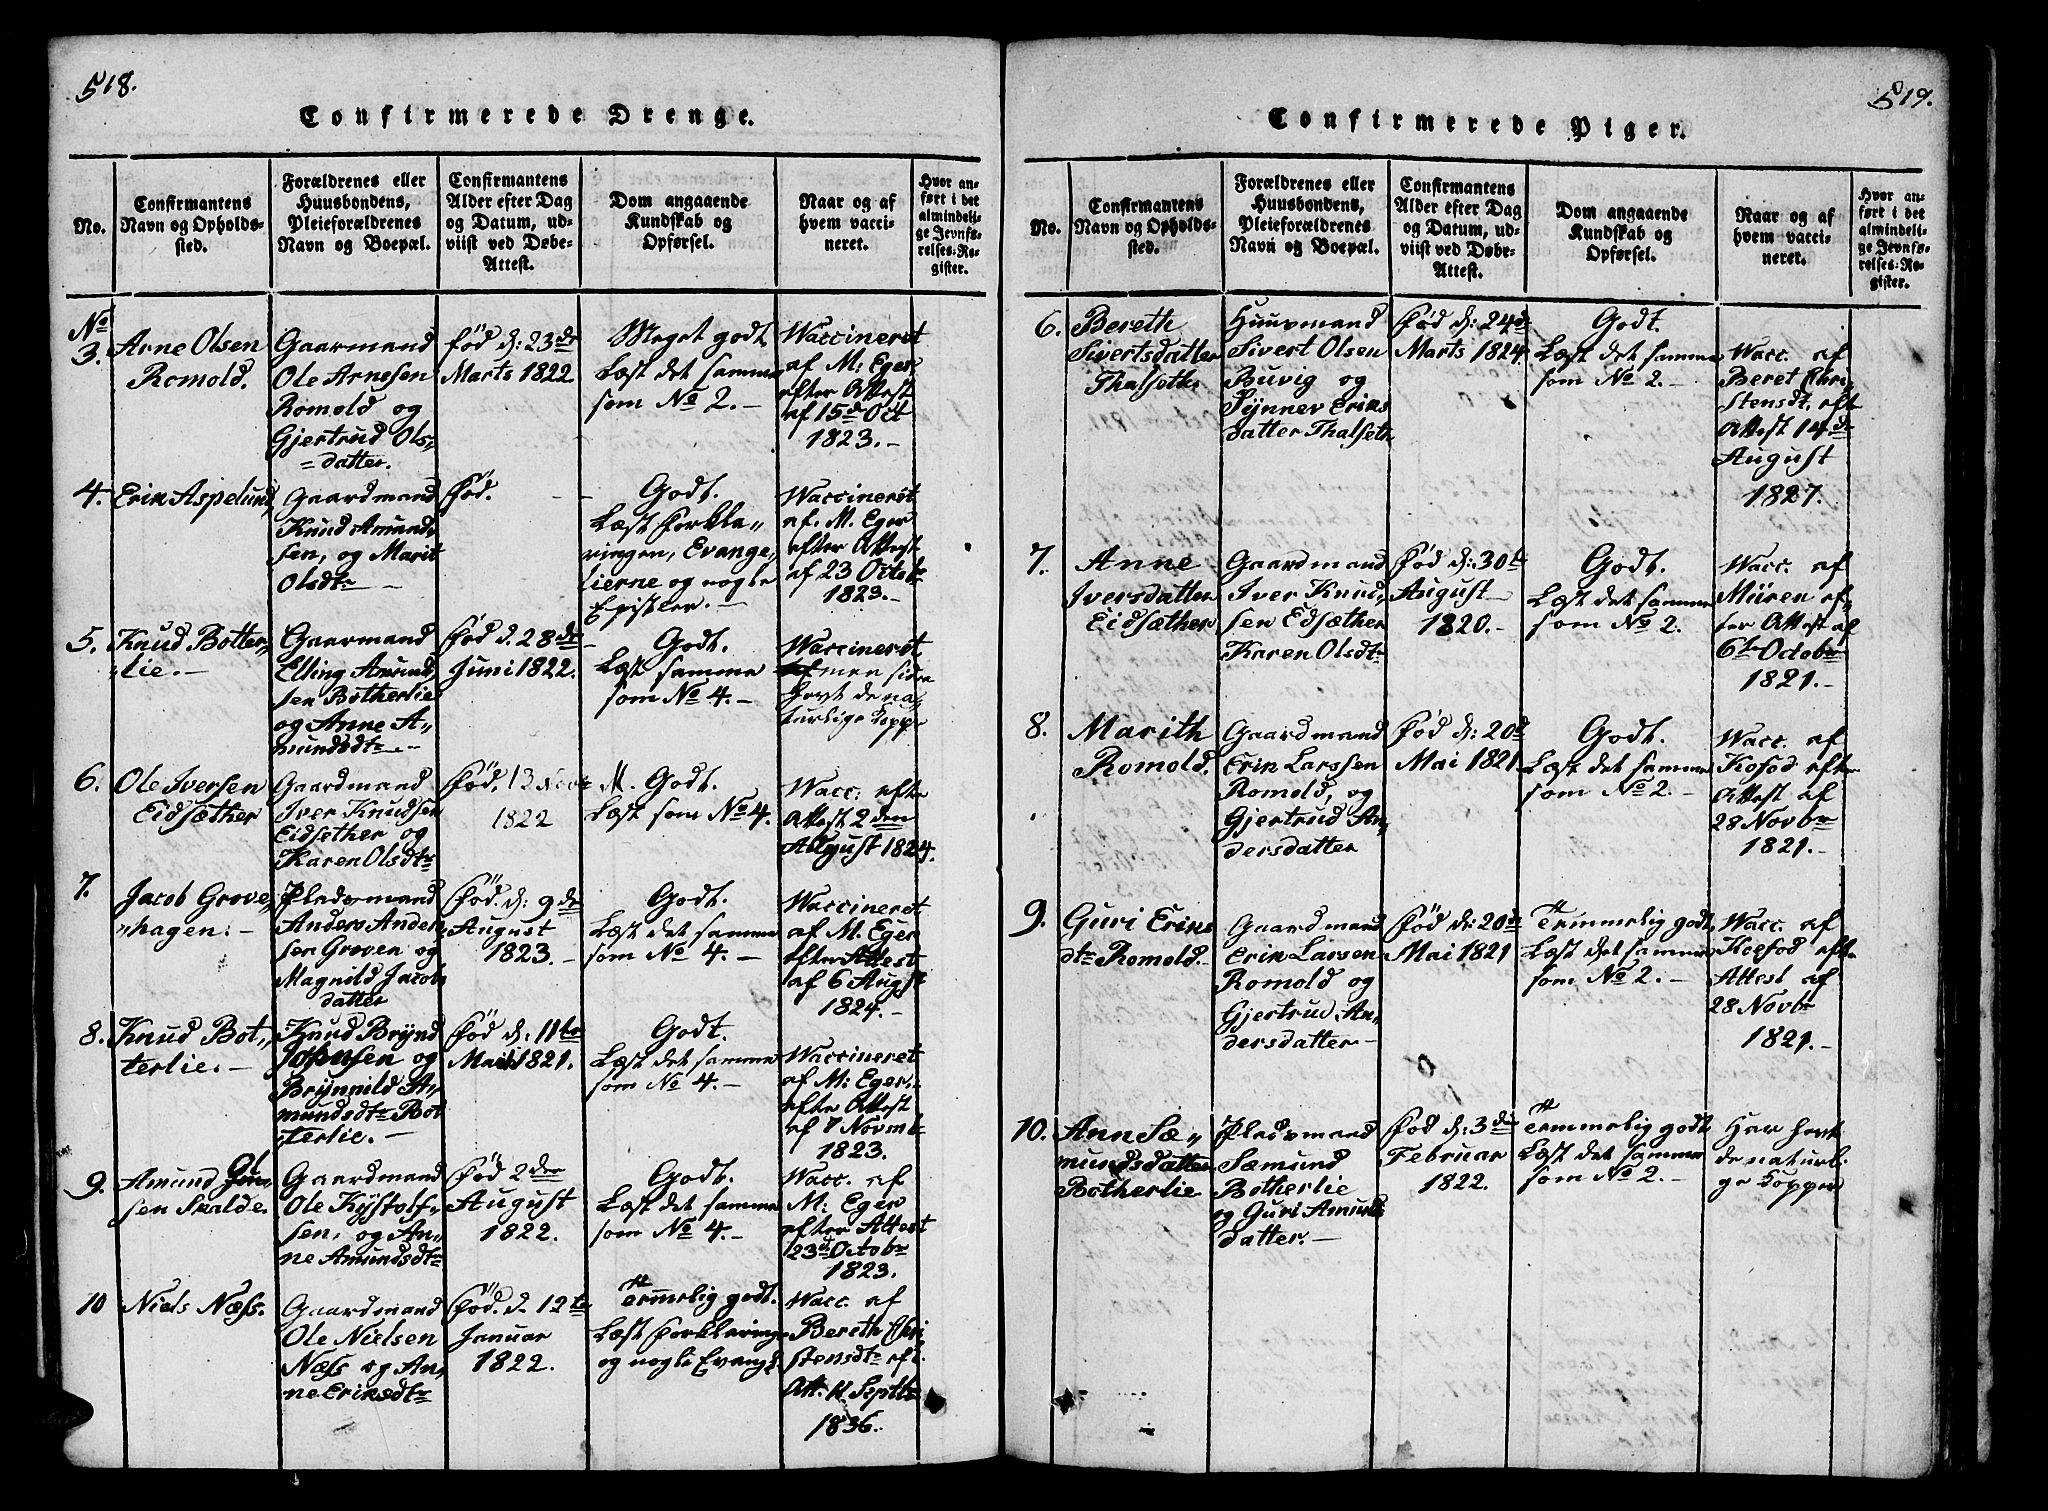 518.
Confirmerede Drenge.
No.
Confirmantens
Navn og Opholds-
sted.
Forældrenes eller
Huusbondens,
Pleieforældrenes
Navn og Boepæl.
Confirmantens
Alder efter Dag
og Datum, ud-
viist ved Døbe-
Attest.
Dom angaaende
Kundskab og
Opførsel.
Naar og af
hvem vacci-
neret.
Hvor an-
ført i det
almindeli-
ge Jevnfø-
relses-Re-
gister.
No
3.
Arne Olsen
Romold.
Gaarmand
Ole Arnesen
Romold og
Gjertrud Ols=
=datter.
fød d: 23de
Marts 1822
Meget godt
Læst det samme
som No 2. -
Waccineret
af M: Eger
efter Attest
af 15d Oct
1823. -
4.
Erik Aspelund,
Gaardmand
Knud Amund,
sen, og Marit
Olsdtr -
Fød.
Godt.
Læst Forkla„
ringen, Evange„
lierne og nogle
Epistler. -
Waccineret
af. M. Eger
efter Attest
af 23 Octob
1823. -
5.
Knud Botter„
„lie. -
Gaarmand
Elling Amund
sen Botherlie
og Anne A„
mundsdtr -
Fød d. 28de
Juni 1822.
Godt.
Læst samme
som No 4. -
Waccineret
men siden
havt de na„
turlige Kopper
6.
Ole Iversen
Eidsæther
Gaardmand
Iver Knudsen
Eidsether og
Karen Olsdtr
Fød. 13
1822
M. Godt.
Læst som No 4.
Wacc. efter
Attest 2den
August 1824.
7.
Jacob Grove„
„hagen. -
Pladsmand
Anders Ander„
sen Groven og
Magnild Jacobs
datter
Fød. d: 9de
August
1823. -
Godt.
Læst det samme
som No 4. -
Waccineret
af M. Eger
efter Attest
af 6 August
1824. -
8.
Knud Bot„
terlie. -
Knud Brynd
Johnsen og
Brynnild A„
mundsdtr Bot
terlie. -
Fød d: 11te
Mai 1821.
Godt.
Læst det samme
som No 4. -
Waccineret
af M: Eger
efter Attest
af 7 Novmb
1823.
9.
Amund Ol
sen Skalde.
Gaardmand
Ole Kystolf„
sen, og An„
ne Amundsdtr
Fød 2den
August
1822.
Godt.
Læst det samme
som No 4. -
Wacc. af
M: Eger
efter Attest
23d Octobr
1823.
10
Niels Næss.
Gaardmand
Ole Nielsen
Næss og An„
ne Eriksdtr
Fød. d. 12te
Januar
1822.
Temmelig godt.
Læst Forklaring
og nogle Evangl.
Wacc. af
Bereth Chri
stensdtr eft.
Att. Septbr
1836.
519.
Confirmerede Piger.
No.
Confirmantens
Navn og Opholds-
sted.
Forældrenes eller
Huusbondens,
Pleieforældrenes
Navn og Boepæl.
Confirmantens
Alder efter Dag
og Datum, ud-
viist ved Døbe-
Attest.
Dom angaaende
Kundskab og
Opførsel.
Naar og af
hvem vacci-
neret.
Hvor an-
ført i det
almindeli-
ge Jevnfø-
relses-Re-
gister.
6.
Bereth
Sivertsdatter
Thalseth.
Huusmand
Sivert Olsen
Buvig og
Synnev Eriks
datter Thalseth
Fød d: 24d
Marts 1824.
Godt.
Læst det samme
som No 2. -
Wacc. af
Beret Chri„
stensdt. eft
Attest 14de
August
1827.
7.
Anne
Iversdatter
Eidsæther.
Gaardmand
Iver Knud„
sen Edsæther
Karen Olsdtr
Fød d: 30te
August
1820. -
Godt.
Læst det samme
som No 2.
Wacc. af
Müren ef„
ter Attest af
6te Octobr
1821. -
8.
Marith
Romold.
Gaardmand
Erik Larssen
Romold, og
Gjertrud An„
dersdatter
Fød d: 20d
Mai 1821
Godt.
Læst det samme
som No 2. -
Wacc. af
Kofod efter
Attest af
28 Novbr
1821. -
9.
Guri Eriks
dtr Romold. -
Gaardmand
Erik Larsen
Romold og
Gjertrud An„
dersdatter -
Fød d: 20de
Mai 1821
Temmelig godt,
Læst det samme
som No 2. -
Wacc. af
Koefod eft
Attest af
28 Novbr
1821. -
10.
Ann Sæ„
mundsdatter
Botherlie
Pladsmand
Sæmund
Botherlie
og Guri Amunds
datter. -
Fød d: 3de
Februar
1822.
Temmelig godt
Læst det samme
som No 2. -
Har havt
de naturli„
ge Kopper